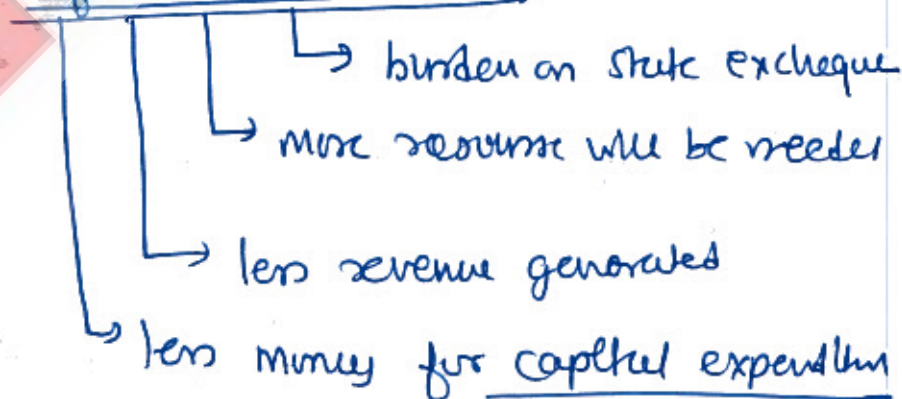 burden on state excheque
more resourse will be needed
less revenue generated
less money for capital expenditure